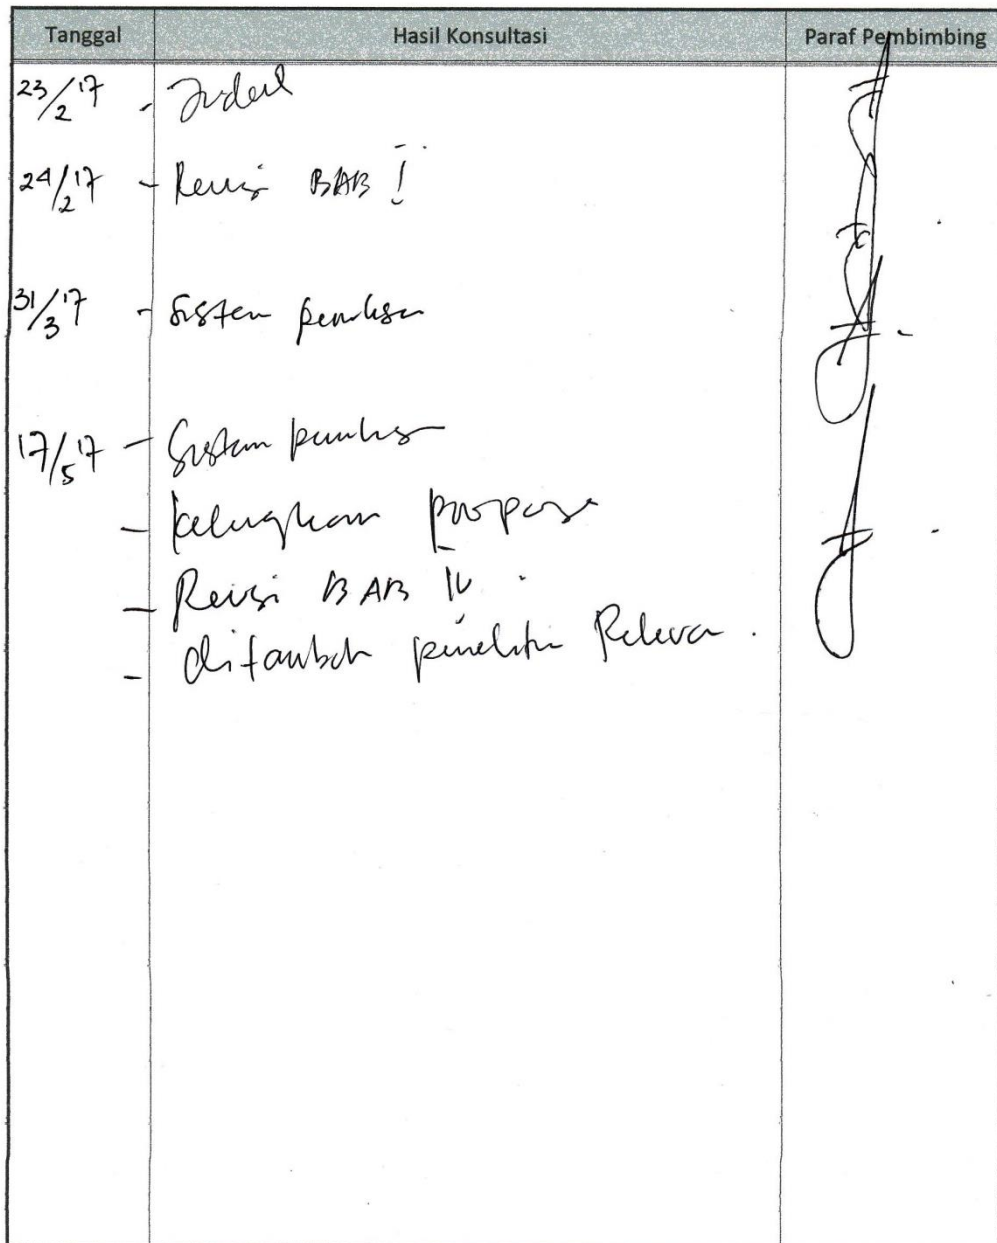 Tanggal Hasil Konsultasi Paraf Pembimbing
23/2 17 - Judul
24/2 17 - Revisi BAB I
31/3 17 - Sistem penulisan
17/5 17 - Sistem penulisan
- kelengkapan
- Revisi BAB IV
- ditambah penelitian Relevan.